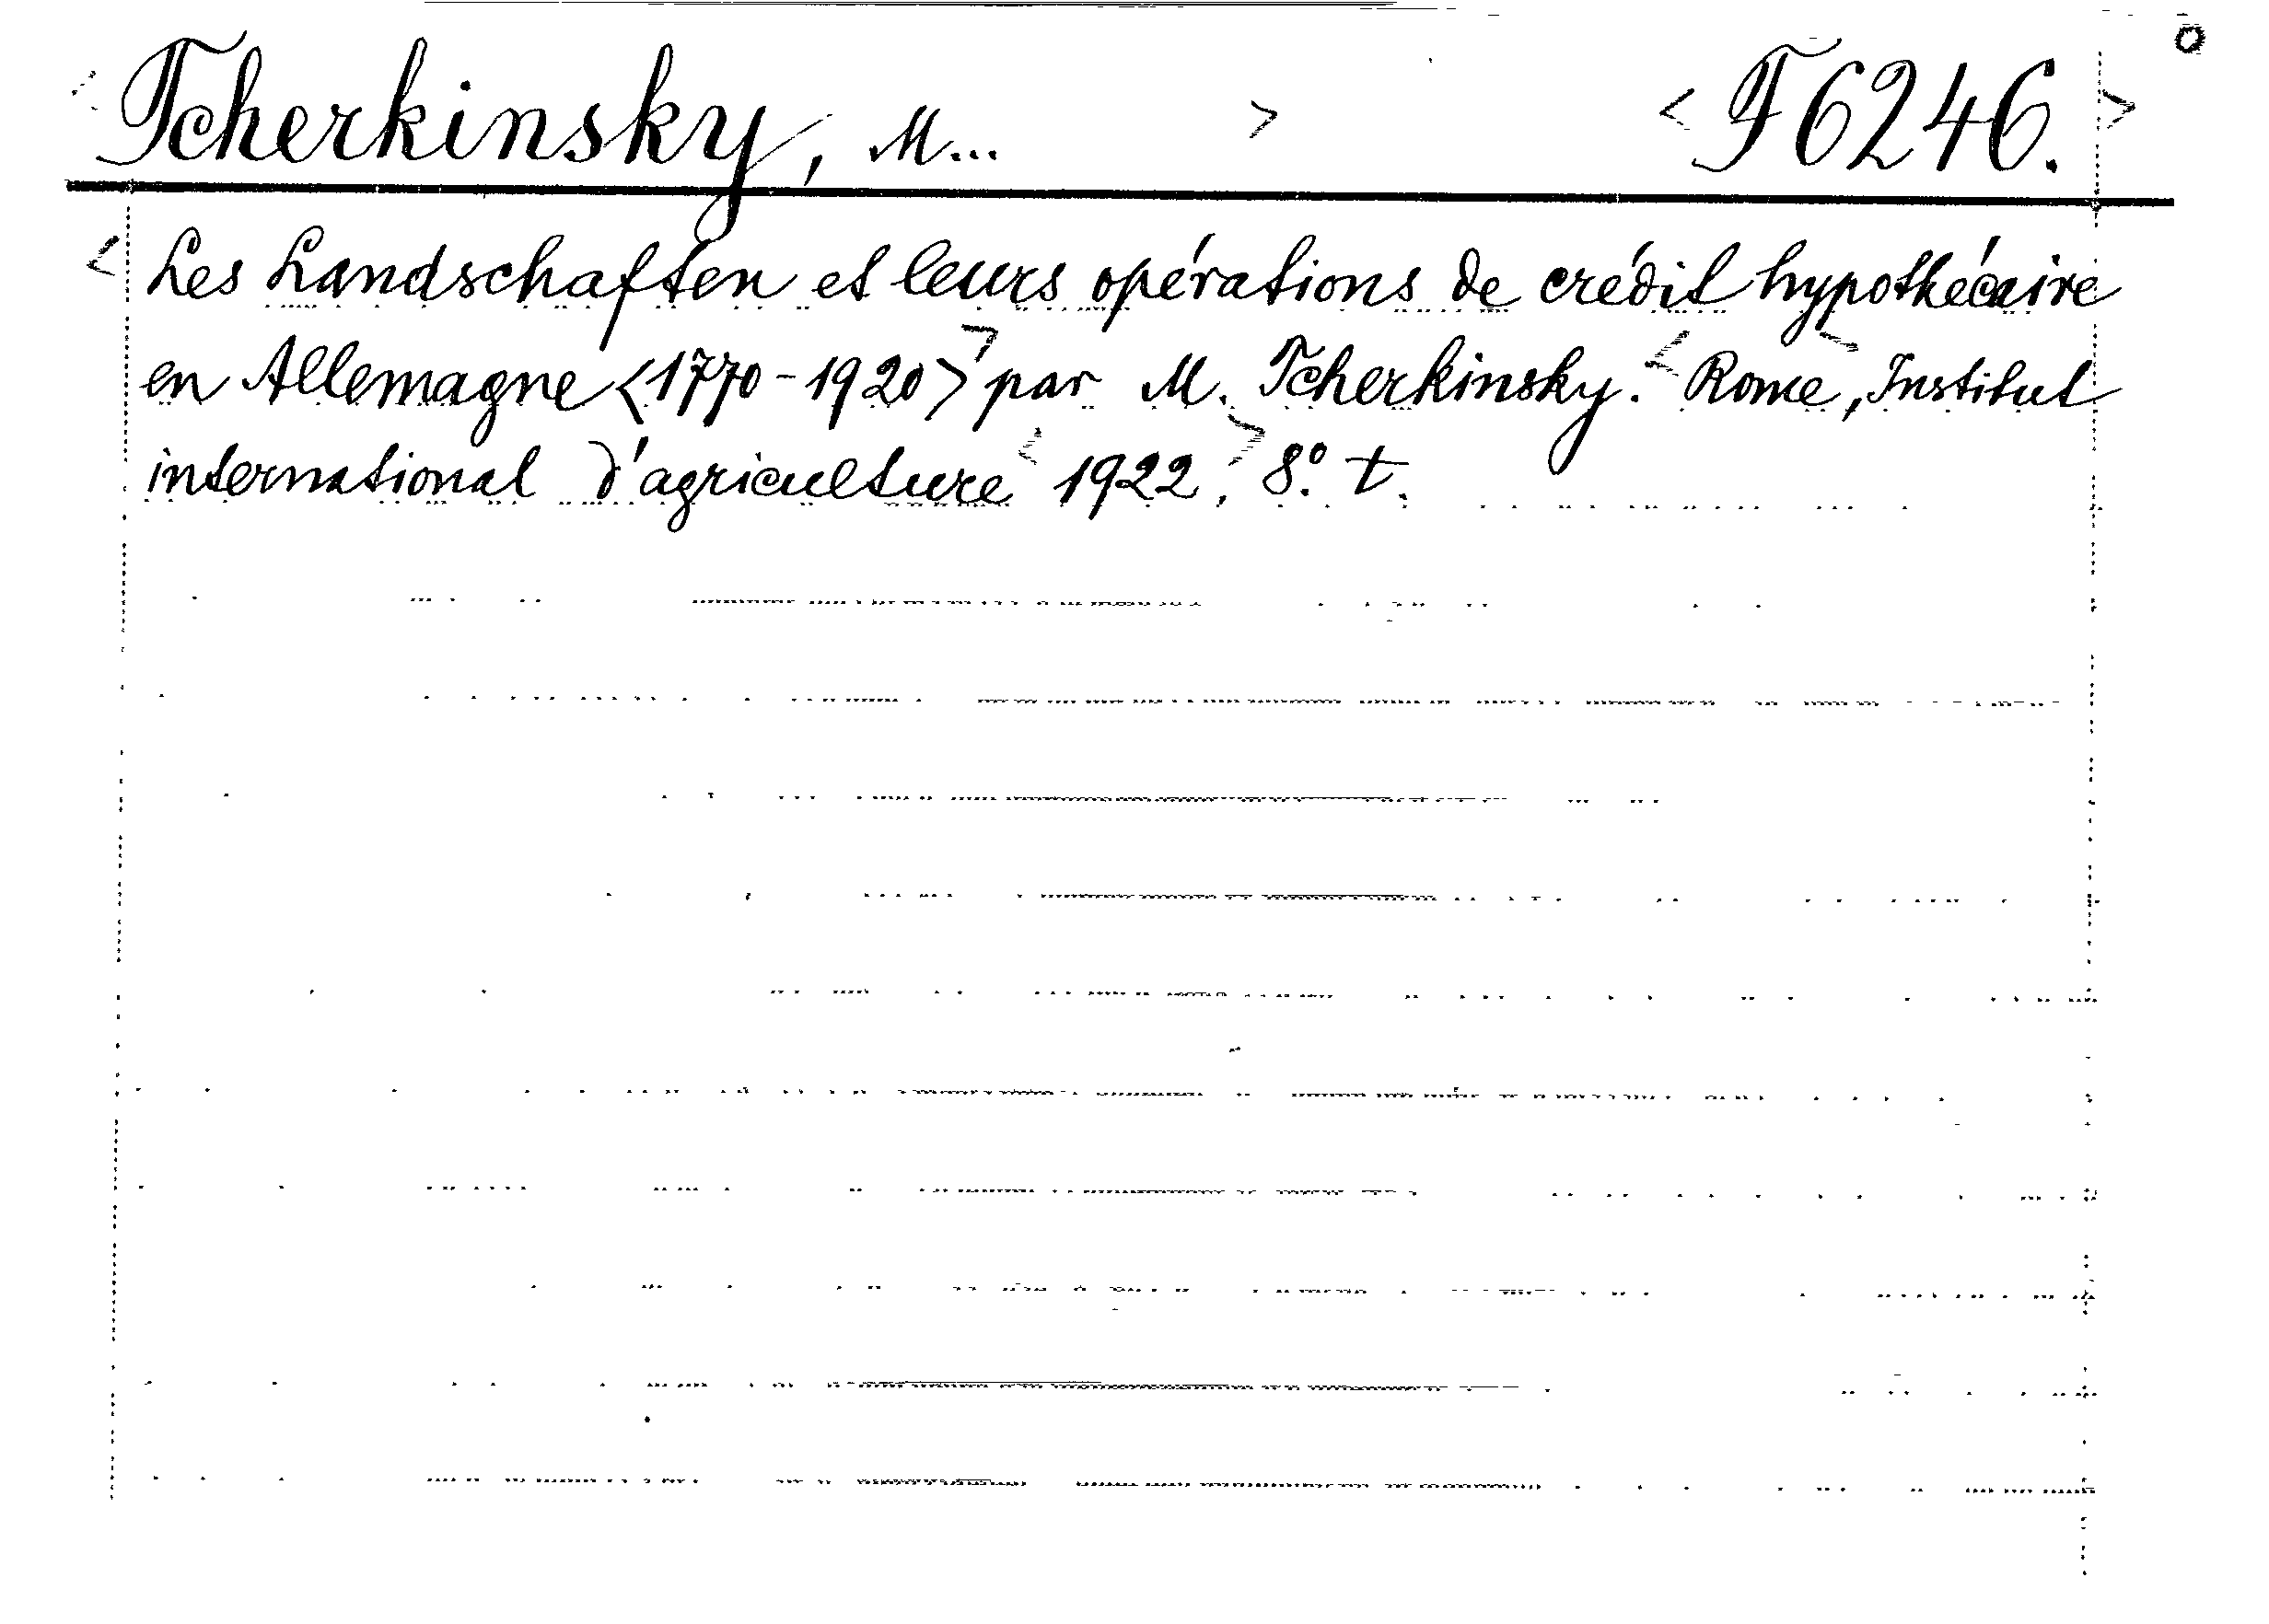 Tcherkinsky, M... F 6246.
Les Landschaften et leurs opérations de crédit hypothécaire
en Allemagne <1770-1920> par M. Tcherkinsky. Rome, Institut
international d'agriculture 1922. 8º. t.